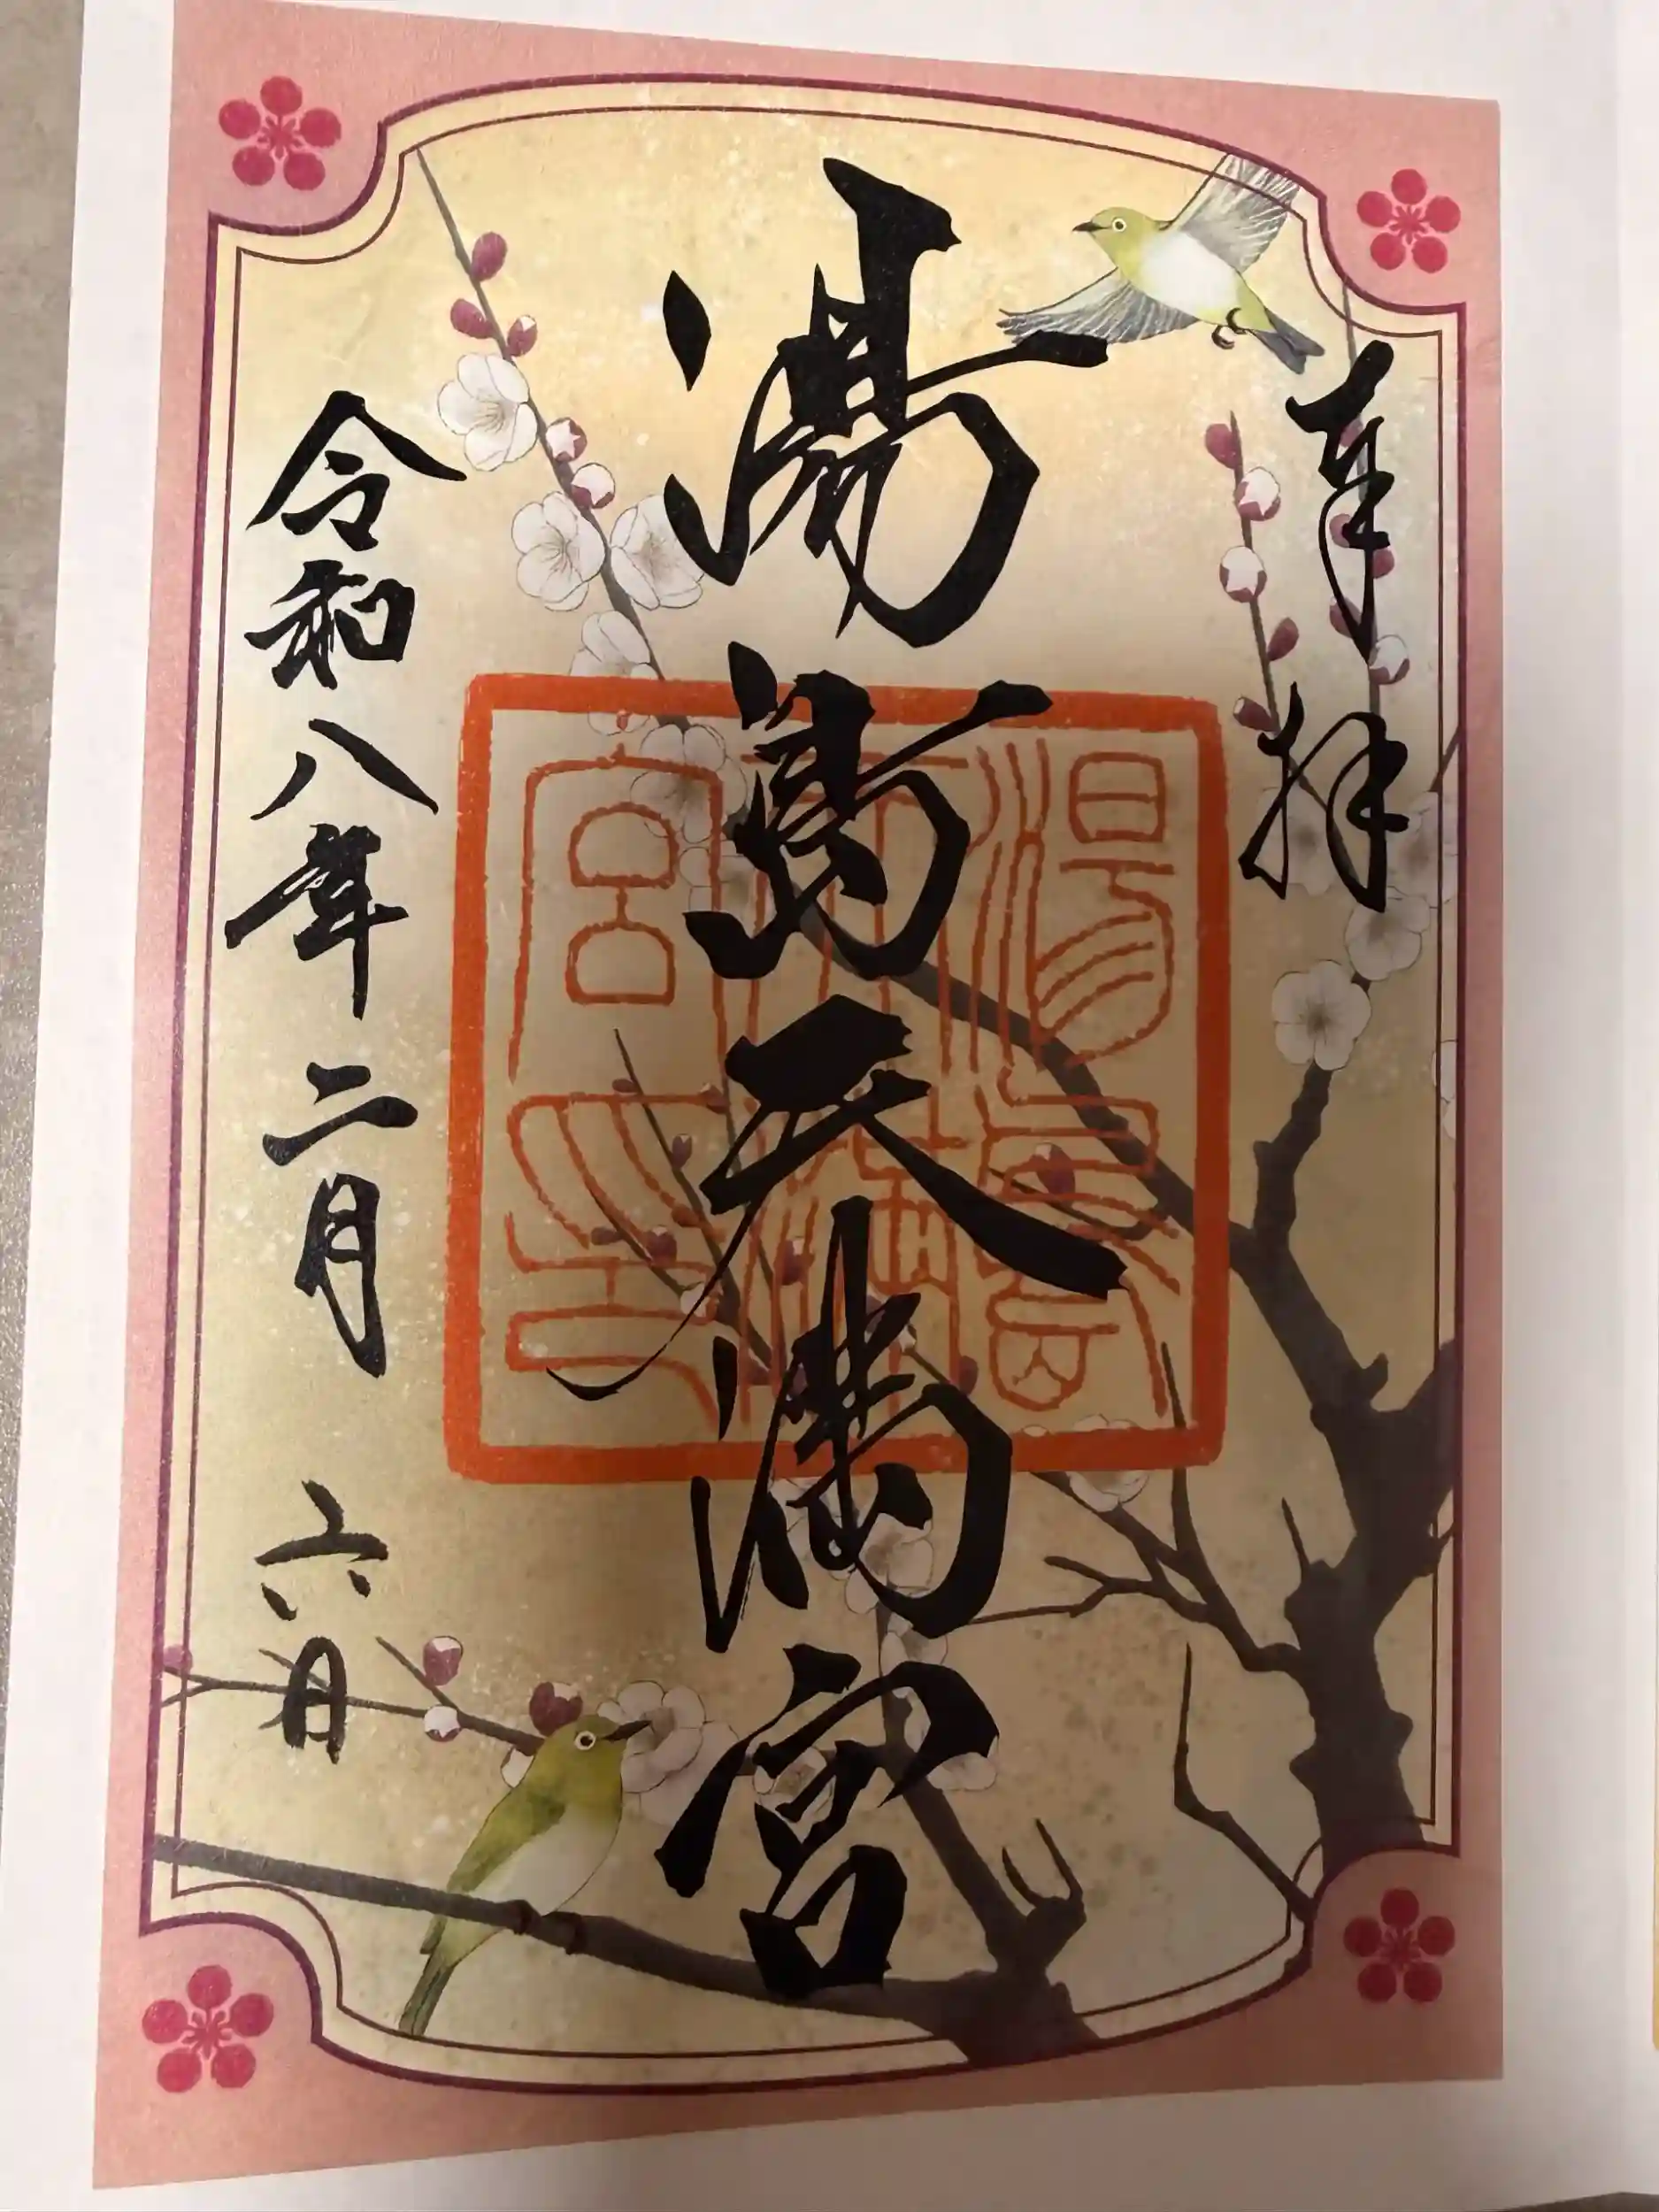 奉拝
湯島天満宮
湯島天満宮印
令和八年二月六日